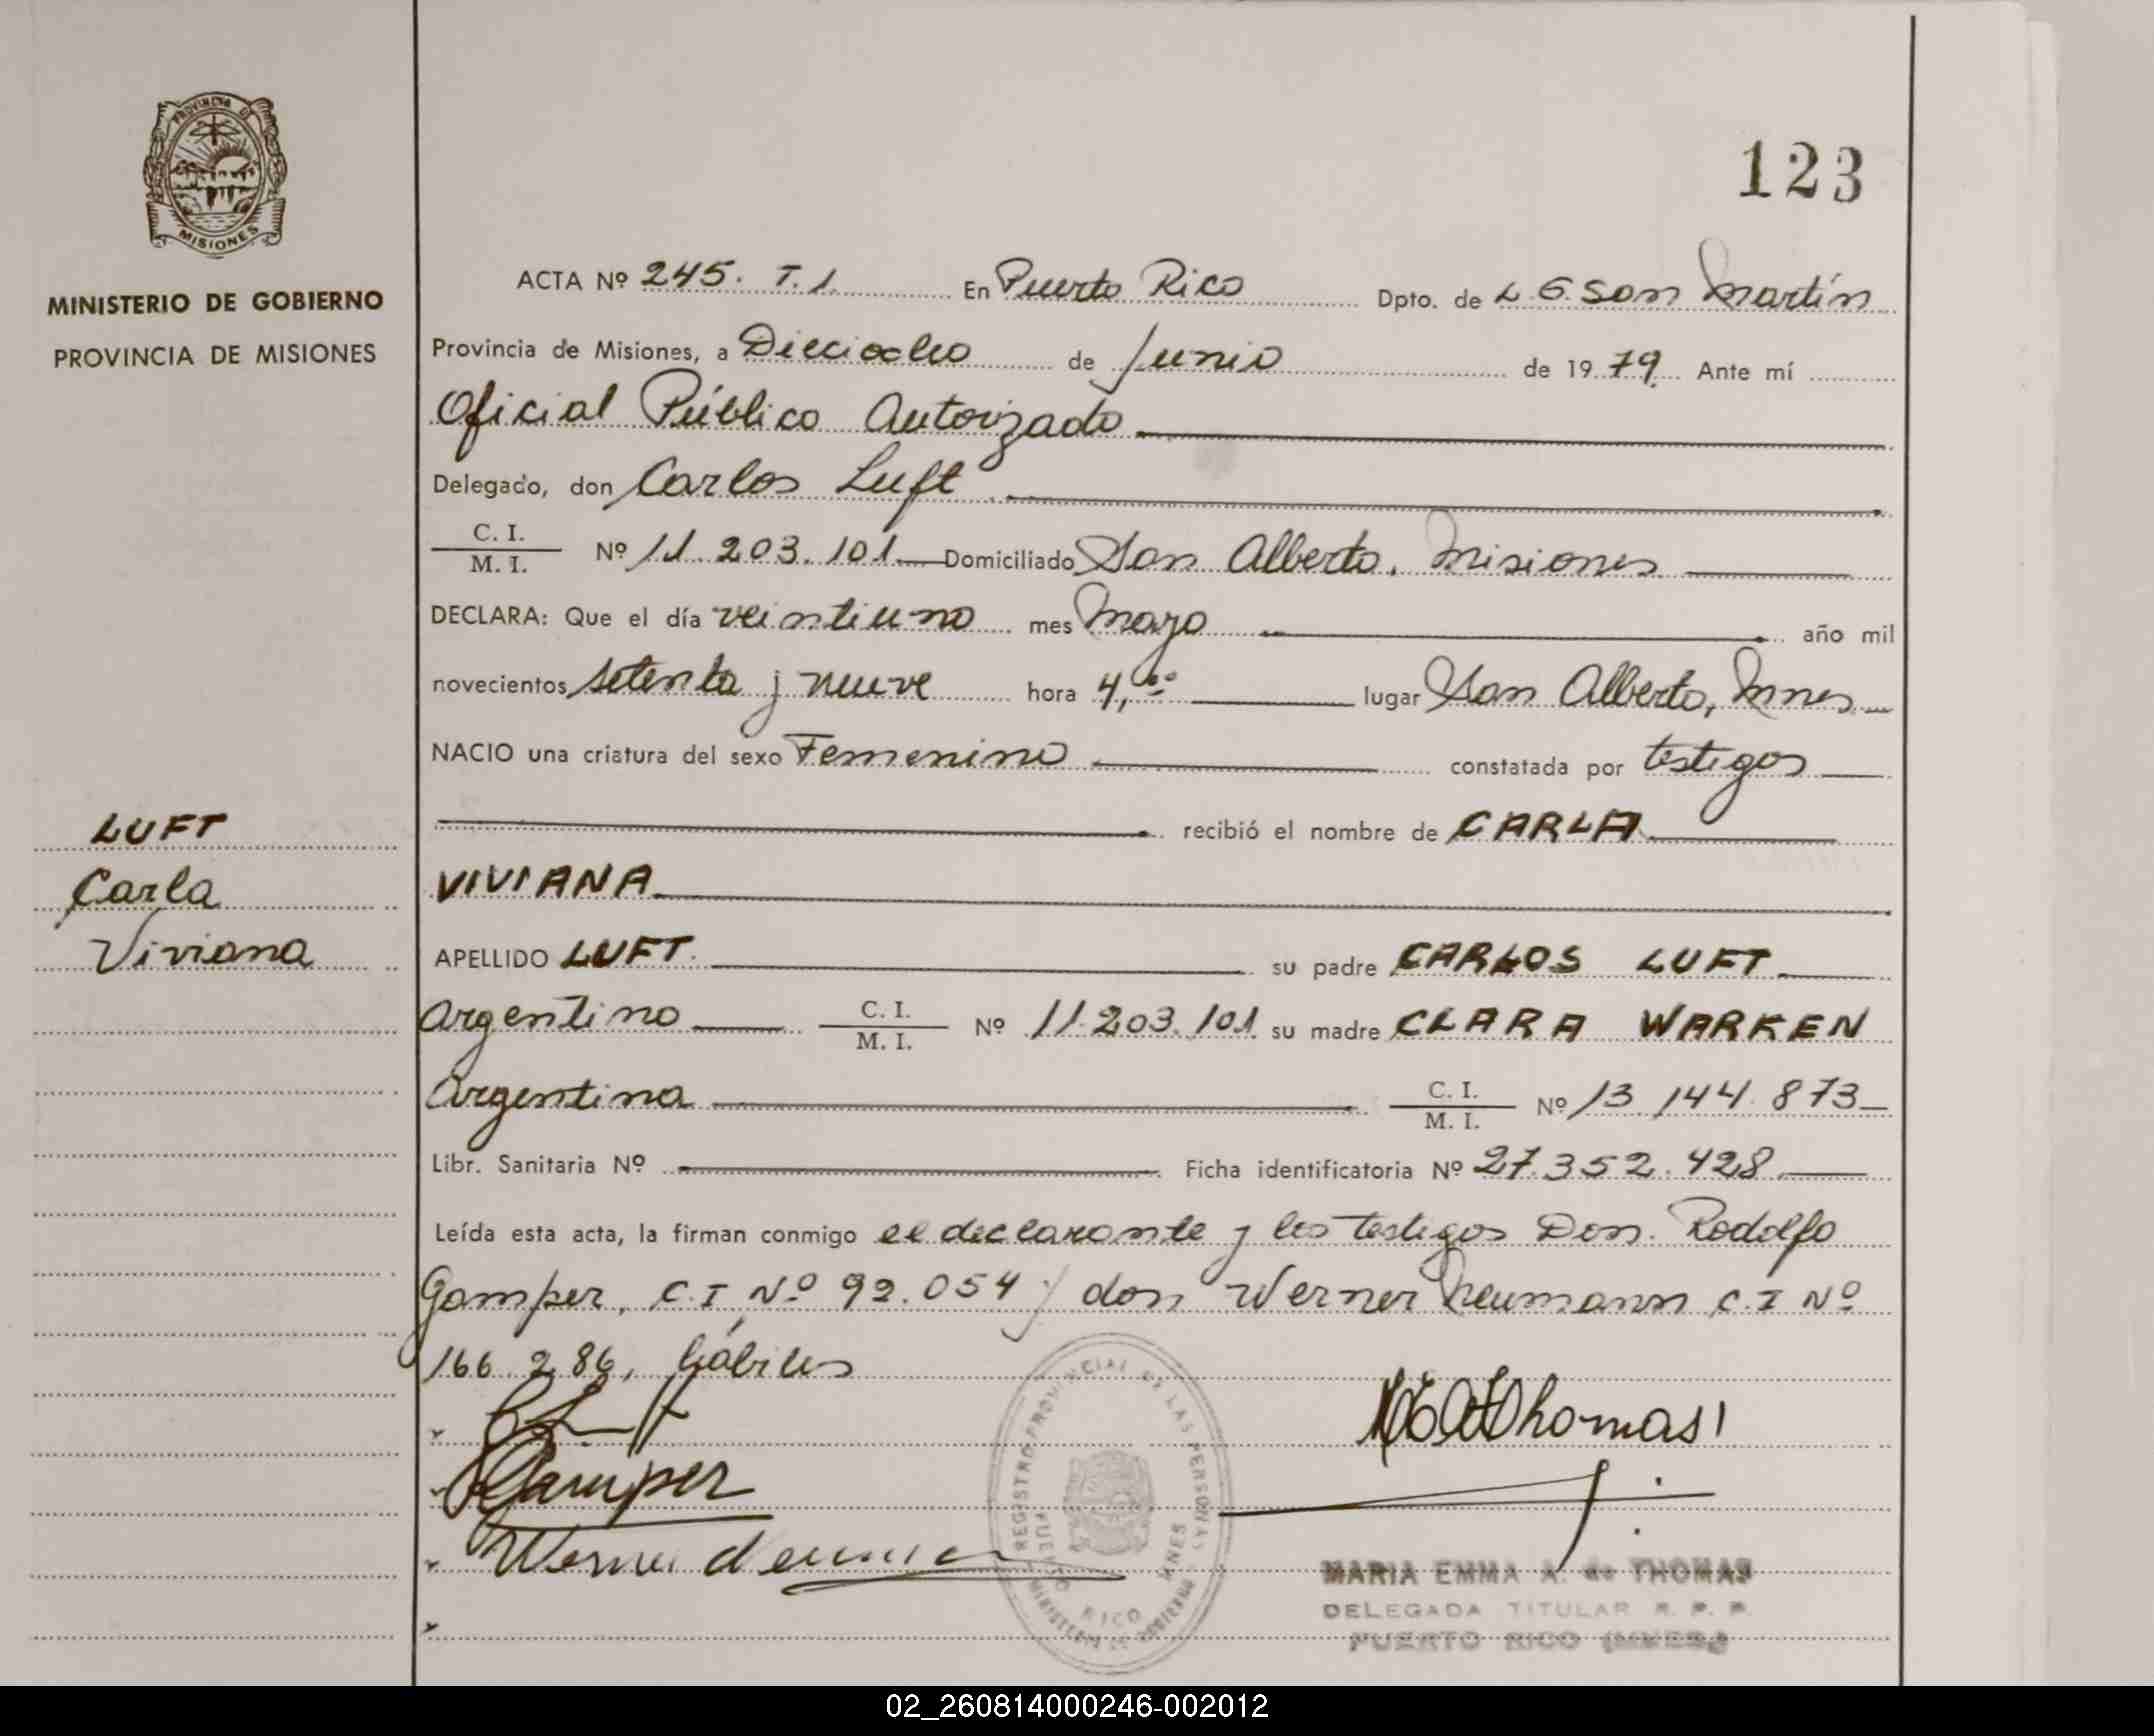 PROVINCIA DE
MISIONES
MINISTERIO DE GOBIERNO
PROVINCIA DE MISIONES
LUFT
Carla
Viviana
123
ACTA Nº 245. T.1. En Puerto Rico Dpto. de L.G. San Martín
Provincia de Misiones, a Dieciocho de Junio de 1979 Ante mí
Oficial Público Autorizado
Delegado, don Carlos Luft
C. I. / M. I. Nº 11.203.101 Domiciliado San Alberto, Misiones
DECLARA: Que el día veintiuno mes Mayo año mil
novecientos setenta y nueve hora 4,00 lugar San Alberto, Mnes
NACIO una criatura del sexo Femenino constatada por testigos
recibió el nombre de CARLA
VIVIANA
APELLIDO LUFT. su padre CARLOS LUFT
Argentino C. I. / M. I. Nº 11.203.101 su madre CLARA WARKEN
Argentina C. I. / M. I. Nº 13.144.873
Libr. Sanitaria Nº Ficha identificatoria Nº 27.352.428
Leída esta acta, la firman conmigo el declarante y los testigos Don. Rodolfo
Gamper, C.I Nº 92.054 y don Werner Neumann C.I Nº
166.286, hábiles
Gamper
Thomas
Werner
REGISTRO PROVINCIAL DE LAS PERSONAS
PUERTO RICO MNES
MINISTERIO DE GOBIERNO
MARIA EMMA A. de THOMAS
DELEGADA TITULAR R. P. P.
PUERTO RICO (MNES.)
02_260814000246-002012